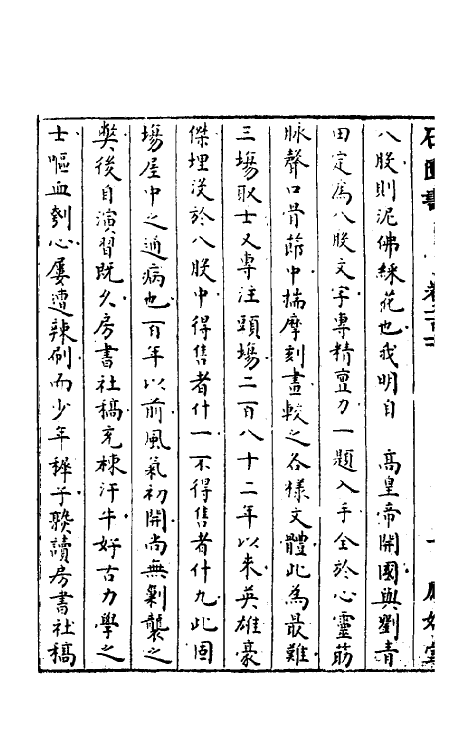 八股則泥佛綵花也我明自　高皇帝開國與劉青
田定為八股文字專精亶力一題入手全於心靈筋
脉聲口骨節中揣摩刻畫較之各樣文體此為最難
三場取士又專注頭場二百八十二年以來英雄豪
傑埋没於八股中得售者什一不得售者什九此固
場屋中之通病也百年以前風氣初開尚無剿襲之
獘後自演習既久房書社稿充棟汗牛好古力學之
士嘔血刳心屢遭辣倒而少年稺子歘讀房書社稿